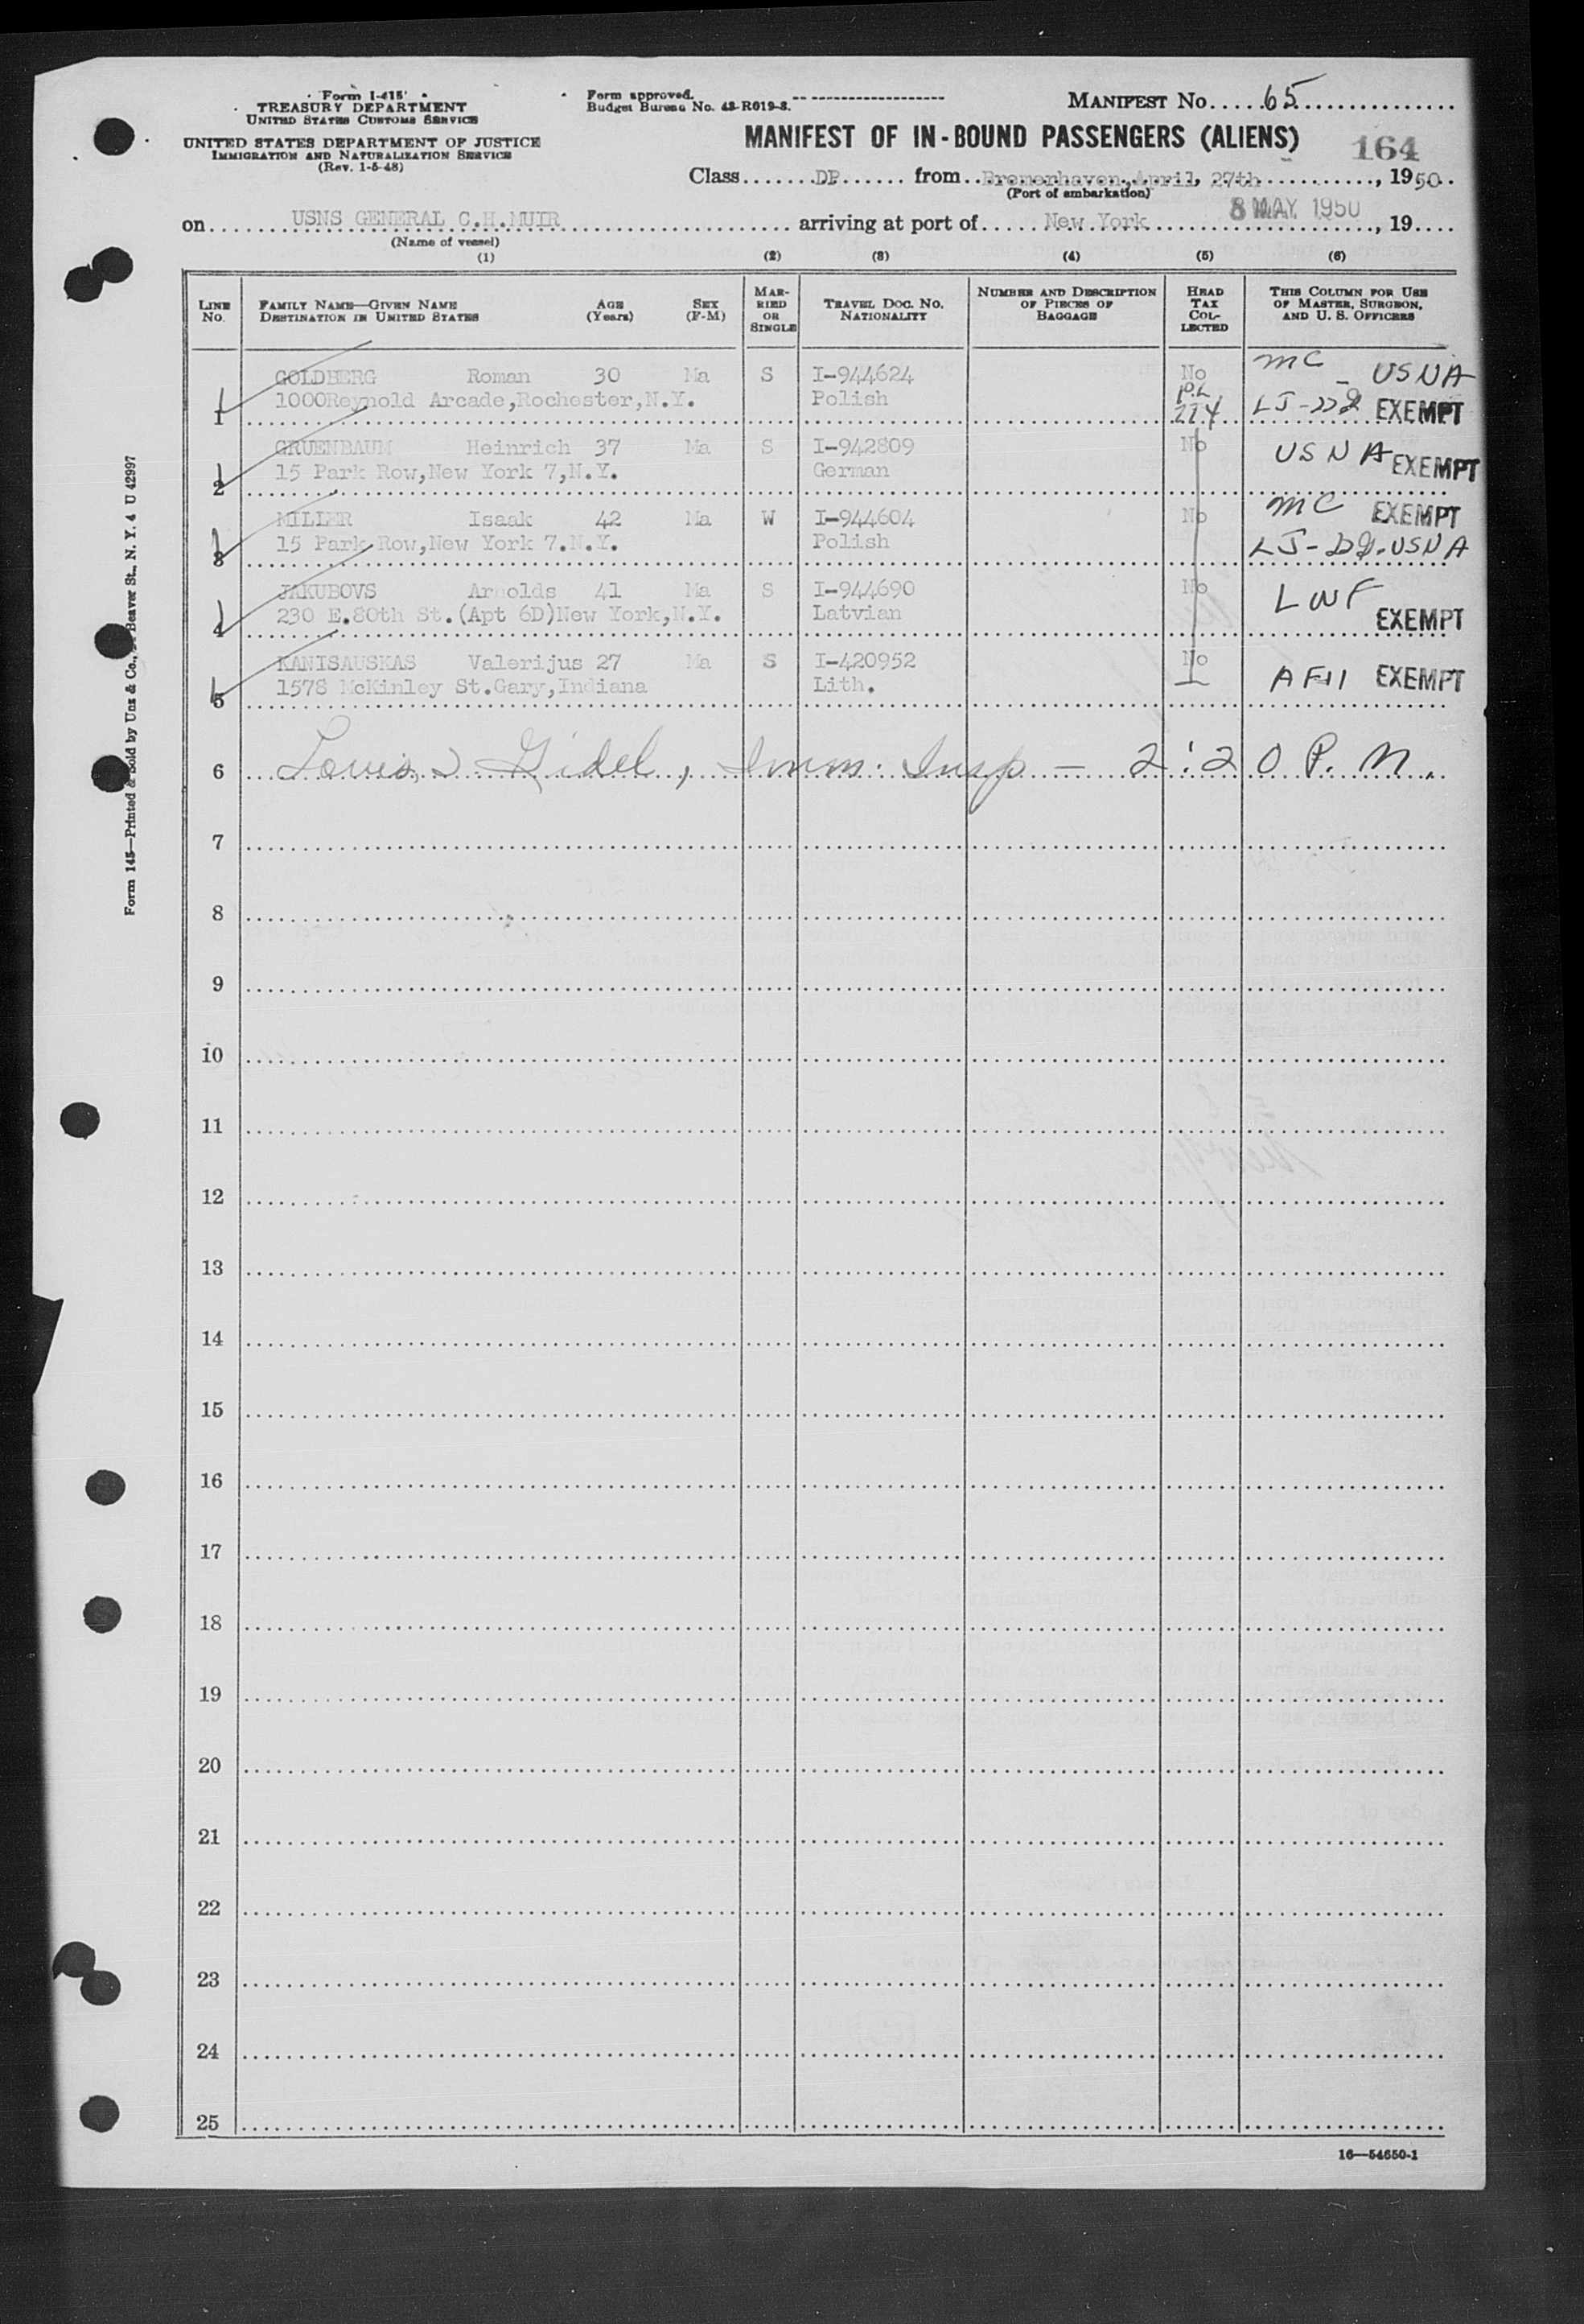 Form I-415
TREASURY DEPARTMENT
UNITED STATES CUSTOMS SERVICE
UNITED STATES DEPARTMENT OF JUSTICE
IMMIGRATION AND NATURALIZATION SERVICE
(Rev. 1-5-48)
Form approved.
Budget Bureau No. 43-R019-3.
MANIFEST No. 65
MANIFEST OF IN-BOUND PASSENGERS (ALIENS)
164
Class DP from Bremerhaven, April, 27th, 1950
(Port of embarkation)
on USNS GENERAL C.H.MUIR arriving at port of New York 8 MAY 1950, 19
(Name of vessel)
(1) (2) (3) (4) (5) (6)
LINE No. FAMILY NAME—GIVEN NAME DESTINATION IN UNITED STATES AGE (Years) SEX (F-M) MARRIED OR SINGLE TRAVEL DOC. No. NATIONALITY NUMBER AND DESCRIPTION OF PIECES OF BAGGAGE HEAD TAX COLLECTED THIS COLUMN FOR USE OF MASTER, SURGEON, AND U. S. OFFICERS
GOLDBERG Roman 30 Ma S I-944624 No MC - USNA
1 1000Reynold Arcade,Rochester,N.Y. Polish P.L 774 LJ-DD EXEMPT
GRUENBAUM Heinrich 37 Ma S I-942809 No USNA EXEMPT
2 15 Park Row,New York 7,N.Y. German
MILLER Isaak 42 Ma W I-944604 No MC EXEMPT
3 15 Park Row,New York 7.N.Y. Polish LJ-DD-USNA
JAKUBOVS Arnolds 41 Ma S I-944690 No LWF
4 230 E.80th St.(Apt 6D)New York,N.Y. Latvian EXEMPT
KANISAUSKAS Valerijus 27 Ma S I-420952 No
5 1578 McKinley St.Gary,Indiana Lith. AFII EXEMPT
6 Louis Gidel, Imm. Insp — 2:20 P.M.
7
8
9
10
11
12
13
14
15
16
17
18
19
20
21
22
23
24
25
16—54650-1
Form 145—Printed & Sold by Unz & Co., Beaver St., N. Y. 4 U 42997